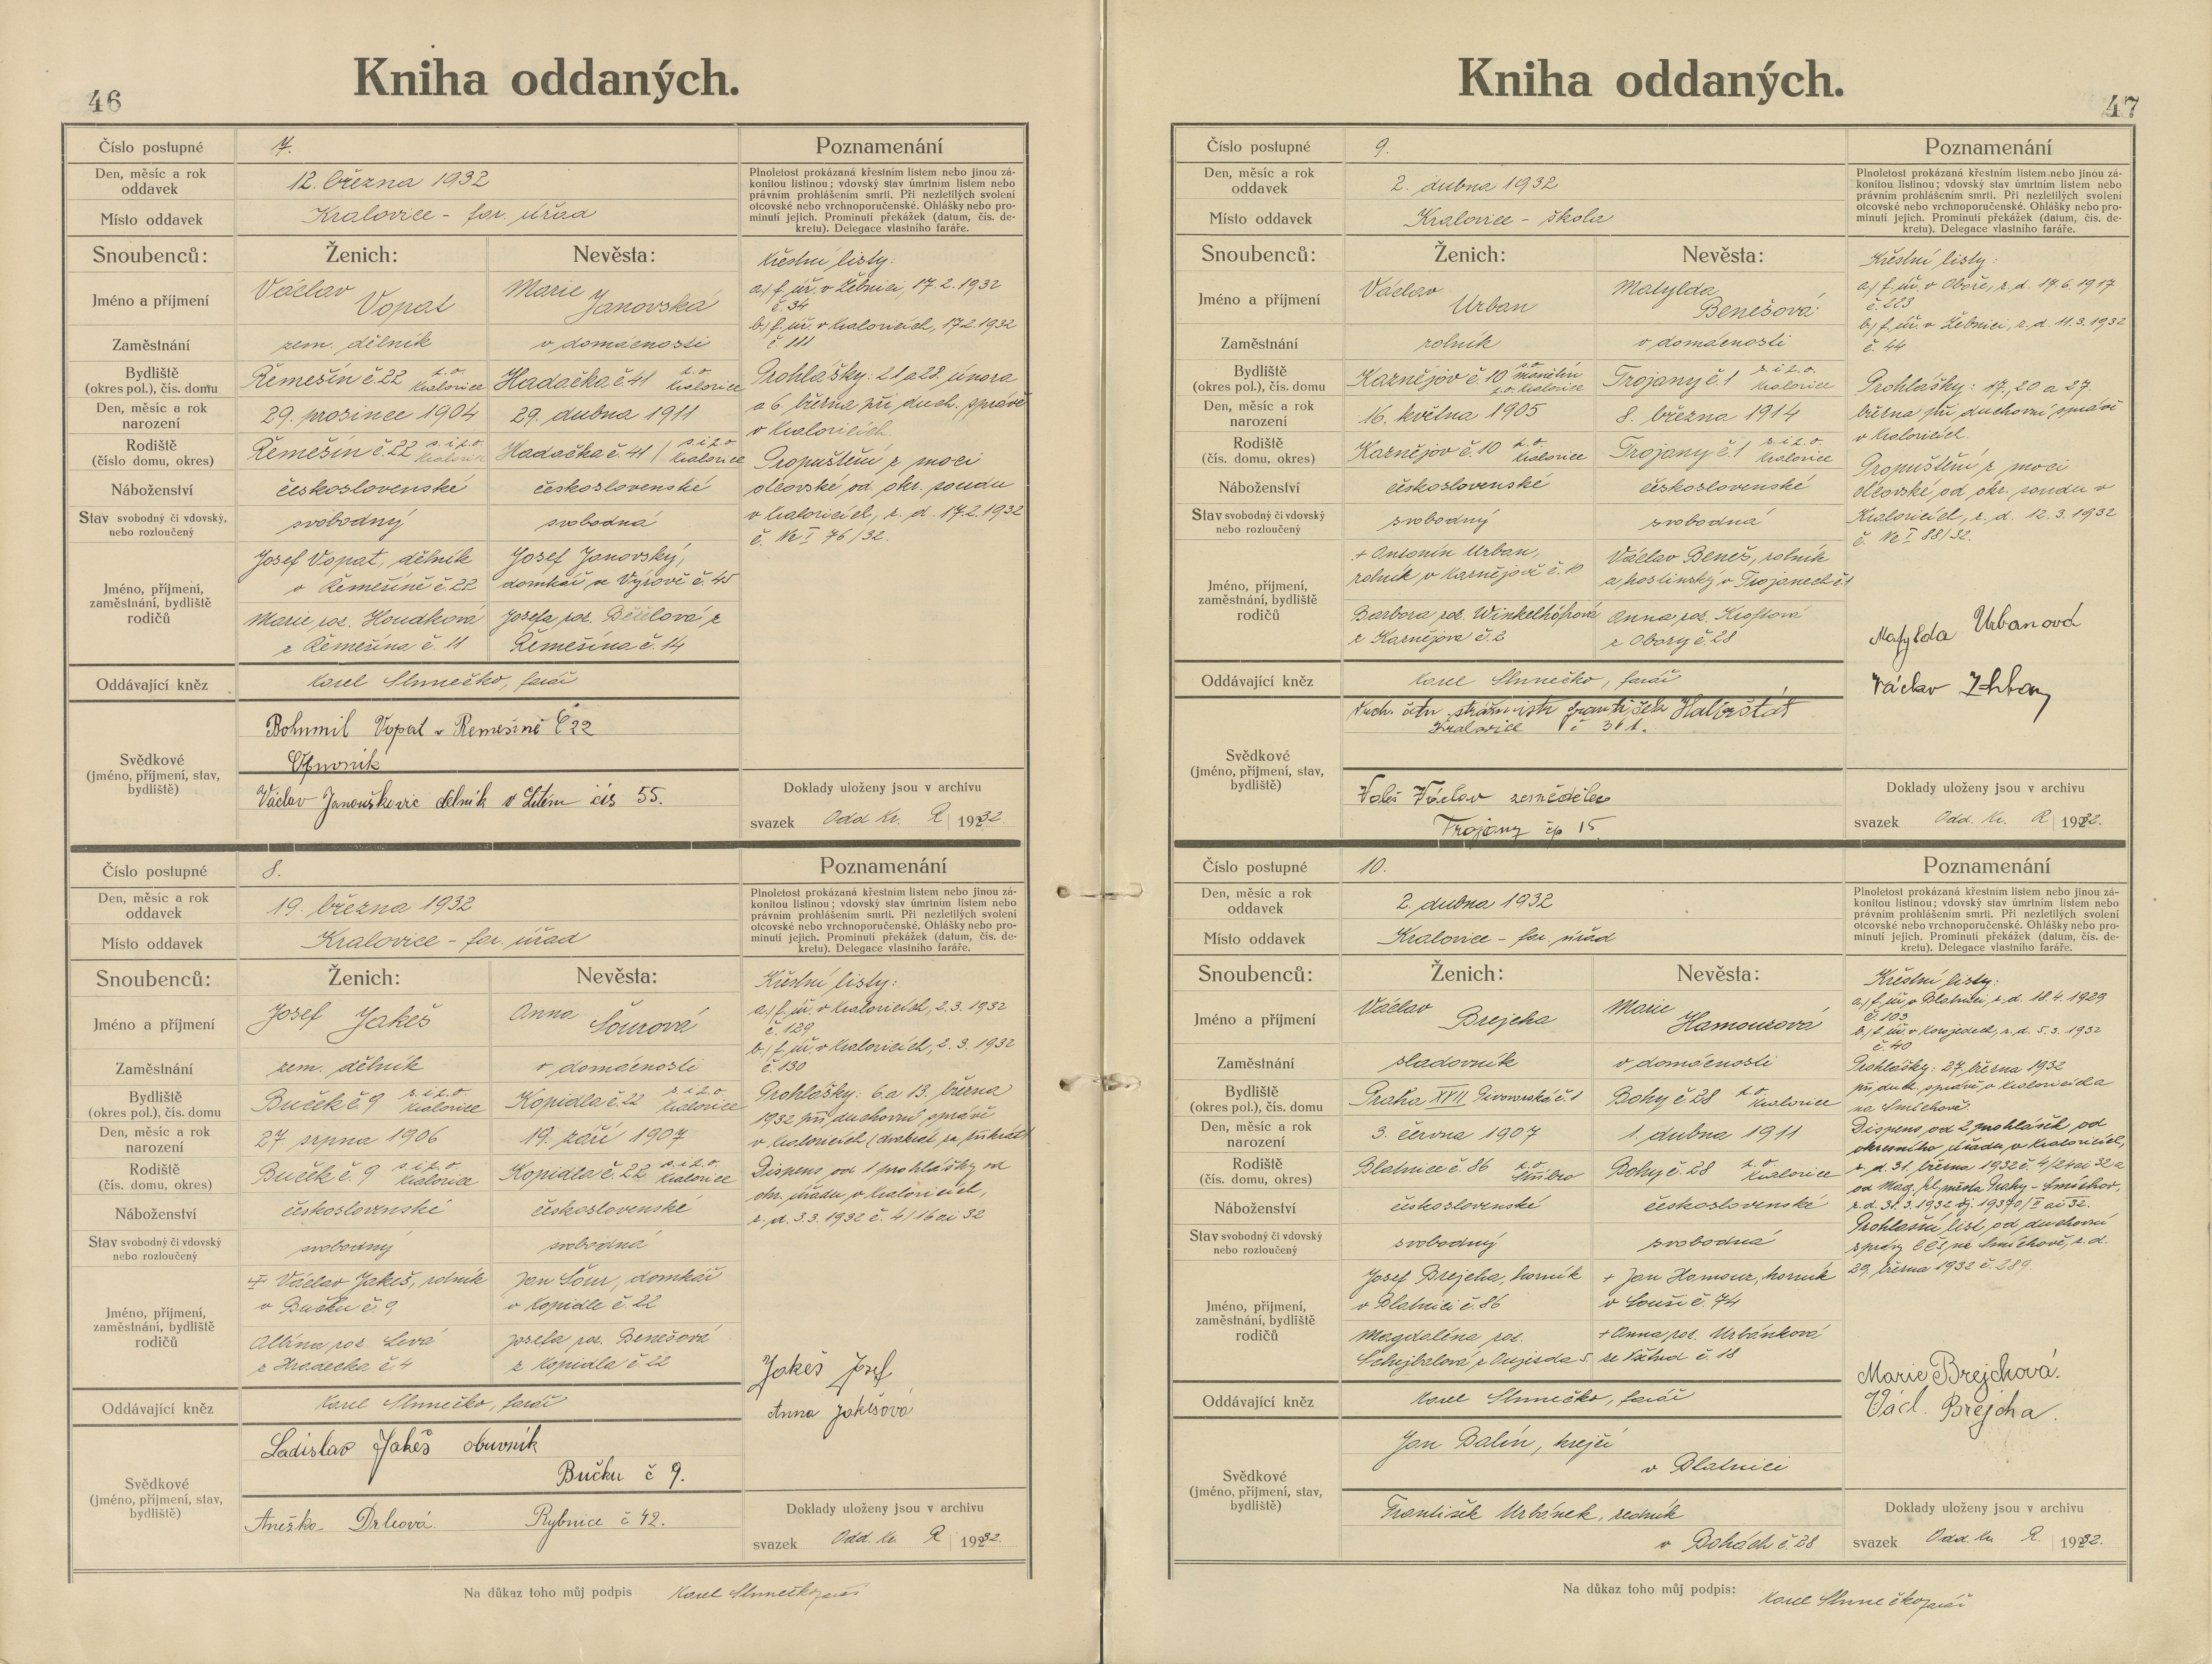 46
Kniha oddaných.
Číslo postupné 7.
Den, měsíc a rok oddavek 12. března 1932
Místo oddavek Kralovice - far. úřad
Poznamenání
Plnoletost prokázaná křestním listem nebo jinou zá-
konitou listinou; vdovský stav úmrtním listem nebo
právním prohlášením smrti. Při nezletilých svolení
otcovské nebo vrchnoporučenské. Ohlášky nebo pro-
minutí jejich. Prominutí překážek (datum, čís. de-
kretu). Delegace vlastního faráře.
Snoubenců: Ženich: Nevěsta:
Jméno a příjmení Václav Vopat Marie Janovská
Zaměstnání zem. dělník v domácnosti
Bydliště (okres pol.), čís. domu Řemešín č. 22 s. o. Kralovice Hadačka č. 41 s. o. Kralovice
Den, měsíc a rok narození 29. prosince 1904 29. dubna 1911
Rodiště (číslo domu, okres) Řemešín č. 22 s. i z. o. Kralovice Hadačka č. 41 / s. i z. o. Kralovice
Náboženství československé československé
Stav svobodný či vdovský, nebo rozloučený svobodný svobodná
Jméno, příjmení, zaměstnání, bydliště rodičů
Josef Vopat, dělník
v Řemešíně č. 22
Josef Janovský,
domkář ve Výrově č. 45
Marie roz. Houdková
z Řemešína č. 11
Josefa roz.
z Řemešína č. 14
Křestní listy:
a) f. úř. v Žebnici, 17. 2. 1932
č. 34
b) f. úř. v Kralovicích, 17.2.1932
č. 111
Prohlášky: 21 a 28. února
a 6. března při duch. správě
v Kralovicích.
Propuštění z moci
otcovské, od okr. soudu
v Kralovicích, z. d. 17.2.1932
č. Nc I 76/32.
Oddávající kněz Karel Slunečko, farář
Svědkové (jméno, příjmení, stav, bydliště)
Bohumil Vopat v Řemešíně č 22
Václav Janouškovic dělník v Lítém čís 55.
Doklady uloženy jsou v archivu
svazek Odd Kr. R 1932.
Číslo postupné 8.
Den, měsíc a rok oddavek 19. března 1932
Místo oddavek Kralovice - far. úřad
Poznamenání
Plnoletost prokázaná křestním listem nebo jinou zá-
konitou listinou; vdovský stav úmrtním listem nebo
právním prohlášením smrti. Při nezletilých svolení
otcovské nebo vrchnoporučenské. Ohlášky nebo pro-
minutí jejich. Prominutí překážek (datum, čís. de-
kretu). Delegace vlastního faráře.
Snoubenců: Ženich: Nevěsta:
Jméno a příjmení Josef Jakeš Anna Šourová
Zaměstnání zem. dělník v domácnosti
Bydliště (okres pol.), čís. domu Buček č. 9 s. i z. o. Kralovice Kopidla č. 22 s. i z. o. Kralovice
Den, měsíc a rok narození 27 srpna 1906 19. září 1907
Rodiště (čís. domu, okres) Buček č. 9 s. i z. o. Kralovice Kopidla č. 22 s. i z. o. Kralovice
Náboženství československé československé
Stav svobodný či vdovský nebo rozloučený svobodný svobodná
Jméno, příjmení, zaměstnání, bydliště rodičů
+ Václav Jakeš, rolník
v Bučku č. 9
Jan Šour, domkář
v Kopidle č. 22
Albína roz. Levá
z Hradecka č. 4
Josefa roz. Benešová
z Kopidla č. 22
Křestní listy:
a) f. úř. v Kralovicích, 2. 3. 1932
č. 129
b) f. úř. v Kralovicích, 2. 3. 1932
č. 130
Prohlášky: 6. a 13. března
1932 při duchovní správě
v Kralovicích
Dispens od 1 prohlášky od
okr. úřadu v Kralovicích,
z. d. 3.3. 1932 č. 4/16 ai 32
Jakeš Josef
Anna Jakešová
Oddávající kněz Karel Slunečko, farář
Svědkové (jméno, příjmení, stav, bydliště)
Ladislav Jakeš obuvník
Bučku č 9.
Anežka Drhová Rybnice č 42.
Doklady uloženy jsou v archivu
svazek Odd. Kr. R 1932.
Na důkaz toho můj podpis Karel Slunečko farář
47
Kniha oddaných.
Číslo postupné 9.
Den, měsíc a rok oddavek 2. dubna 1932
Místo oddavek Kralovice - škola
Poznamenání
Plnoletost prokázaná křestním listem nebo jinou zá-
konitou listinou; vdovský stav úmrtním listem nebo
právním prohlášením smrti. Při nezletilých svolení
otcovské nebo vrchnoporučenské. Ohlášky nebo pro-
minutí jejich. Prominutí překážek (datum, čís. de-
kretu). Delegace vlastního faráře.
Snoubenců: Ženich: Nevěsta:
Jméno a příjmení Václav Urban Matylda Benešová
Zaměstnání rolník v domácnosti
Bydliště (okres pol.), čís. domu Kaznějov č. 10 s. o. Manětín z. o. Kralovice Trojany č. 1 s. i z. o. Kralovice
Den, měsíc a rok narození 16. května 1905 8. března 1914
Rodiště (čís. domu, okres) Kaznějov č. 10 z. o. Kralovice Trojany č. 1 s. i z. o. Kralovice
Náboženství československé československé
Stav svobodný či vdovský nebo rozloučený svobodný svobodná
Jméno, příjmení, zaměstnání, bydliště rodičů
+ Antonín Urban,
rolník v Kaznějově č. 10
Václav Beneš, rolník
a hostinský v Trojanech č 1
Barbora roz. Winkelhöfrová
z Kaznějova č. 2
Anna roz. Kroftová
z Obory č. 28
Křestní listy:
a) f. úř. v Oboře, z. d. 17. 6. 1917
č. 223
b) f. úř. v Žebnici, z. d. 11. 3. 1932
č. 44
Prohlášky: 17., 20 a 27
března při duchovní správě
v Kralovicích.
Propuštění z moci
otcovské od okr. soudu v
Kralovicích, z. d. 12. 3. 1932
č. Nc I 88/32.
Matylda Urbanová
Václav Urban
Oddávající kněz Karel Slunečko, farář
Svědkové (jméno, příjmení, stav, bydliště)
četn strážmistr František Halbrštát
Kralovice č 361.
Voleš Václav zemědělec
Trojany čp 15
Doklady uloženy jsou v archivu
svazek Odd. Kr. R 1932.
Číslo postupné 10.
Den, měsíc a rok oddavek 2. dubna 1932
Místo oddavek Kralovice - far. úřad
Poznamenání
Plnoletost prokázaná křestním listem nebo jinou zá-
konitou listinou; vdovský stav úmrtním listem nebo
právním prohlášením smrti. Při nezletilých svolení
otcovské nebo vrchnoporučenské. Ohlášky nebo pro-
minutí jejich. Prominutí překážek (datum, čís. de-
kretu). Delegace vlastního faráře.
Snoubenců: Ženich: Nevěsta:
Jméno a příjmení Václav Brejcha Marie Hamouzová
Zaměstnání sladovník v domácnosti
Bydliště (okres pol.), čís. domu Praha XVII Pivovarská č. 1 Bohy č 28 z. o. Kralovice
Den, měsíc a rok narození 3. června 1907 1. dubna 1911
Rodiště (čís. domu, okres) Blatnice č. 86 z. o. Stříbro Bohy č. 28 z. o. Kralovice
Náboženství československé československé
Stav svobodný či vdovský nebo rozloučený svobodný svobodná
Jméno, příjmení, zaměstnání, bydliště rodičů
Josef Brejcha, horník
v Blatnici č. 86
+ Jan Hamouz, horník
v Souši č. 74
Magdaléna roz.
Schejbalová z Oujezda 5.
+ Anna roz. Urbánková
ze Všehrd č. 18
Křestní listy:
a) f. úř. v Blatnici, z. d. 18. 4. 1929
č. 103
b) f. úř. v Kozojedech, z. d. 5. 3. 1932
č. 40
Prohlášky: 27. března 1932
při duch. správě v Kralovicích a
na Smíchově.
Dispens od 2 prohlášek od
okresního úřadu v Kralovicích,
z. d. 31. března 1932 č. 4/24 ai 32 a
od Mag. hl. města Prahy - Smíchov,
z. d. 31. 3. 1932 čj. 19370/I ai 32.
Prohlašní list od duchovní
správy CČS, na Smíchově, z. d.
29. března 1932 č. 289
Marie Brejchová.
Václ. Brejcha.
Oddávající kněz Karel Slunečko, farář
Svědkové (jméno, příjmení, stav, bydliště)
Jan Balín, krejčí
v Blatnici
František Urbánek, zedník
v Bohách č. 28
Doklady uloženy jsou v archivu
svazek Odd. Kr. R. 1932.
Na důkaz toho můj podpis: Karel Slunečko farář